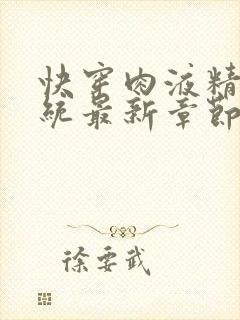 快穿肉液精
统最新章节
徐要武